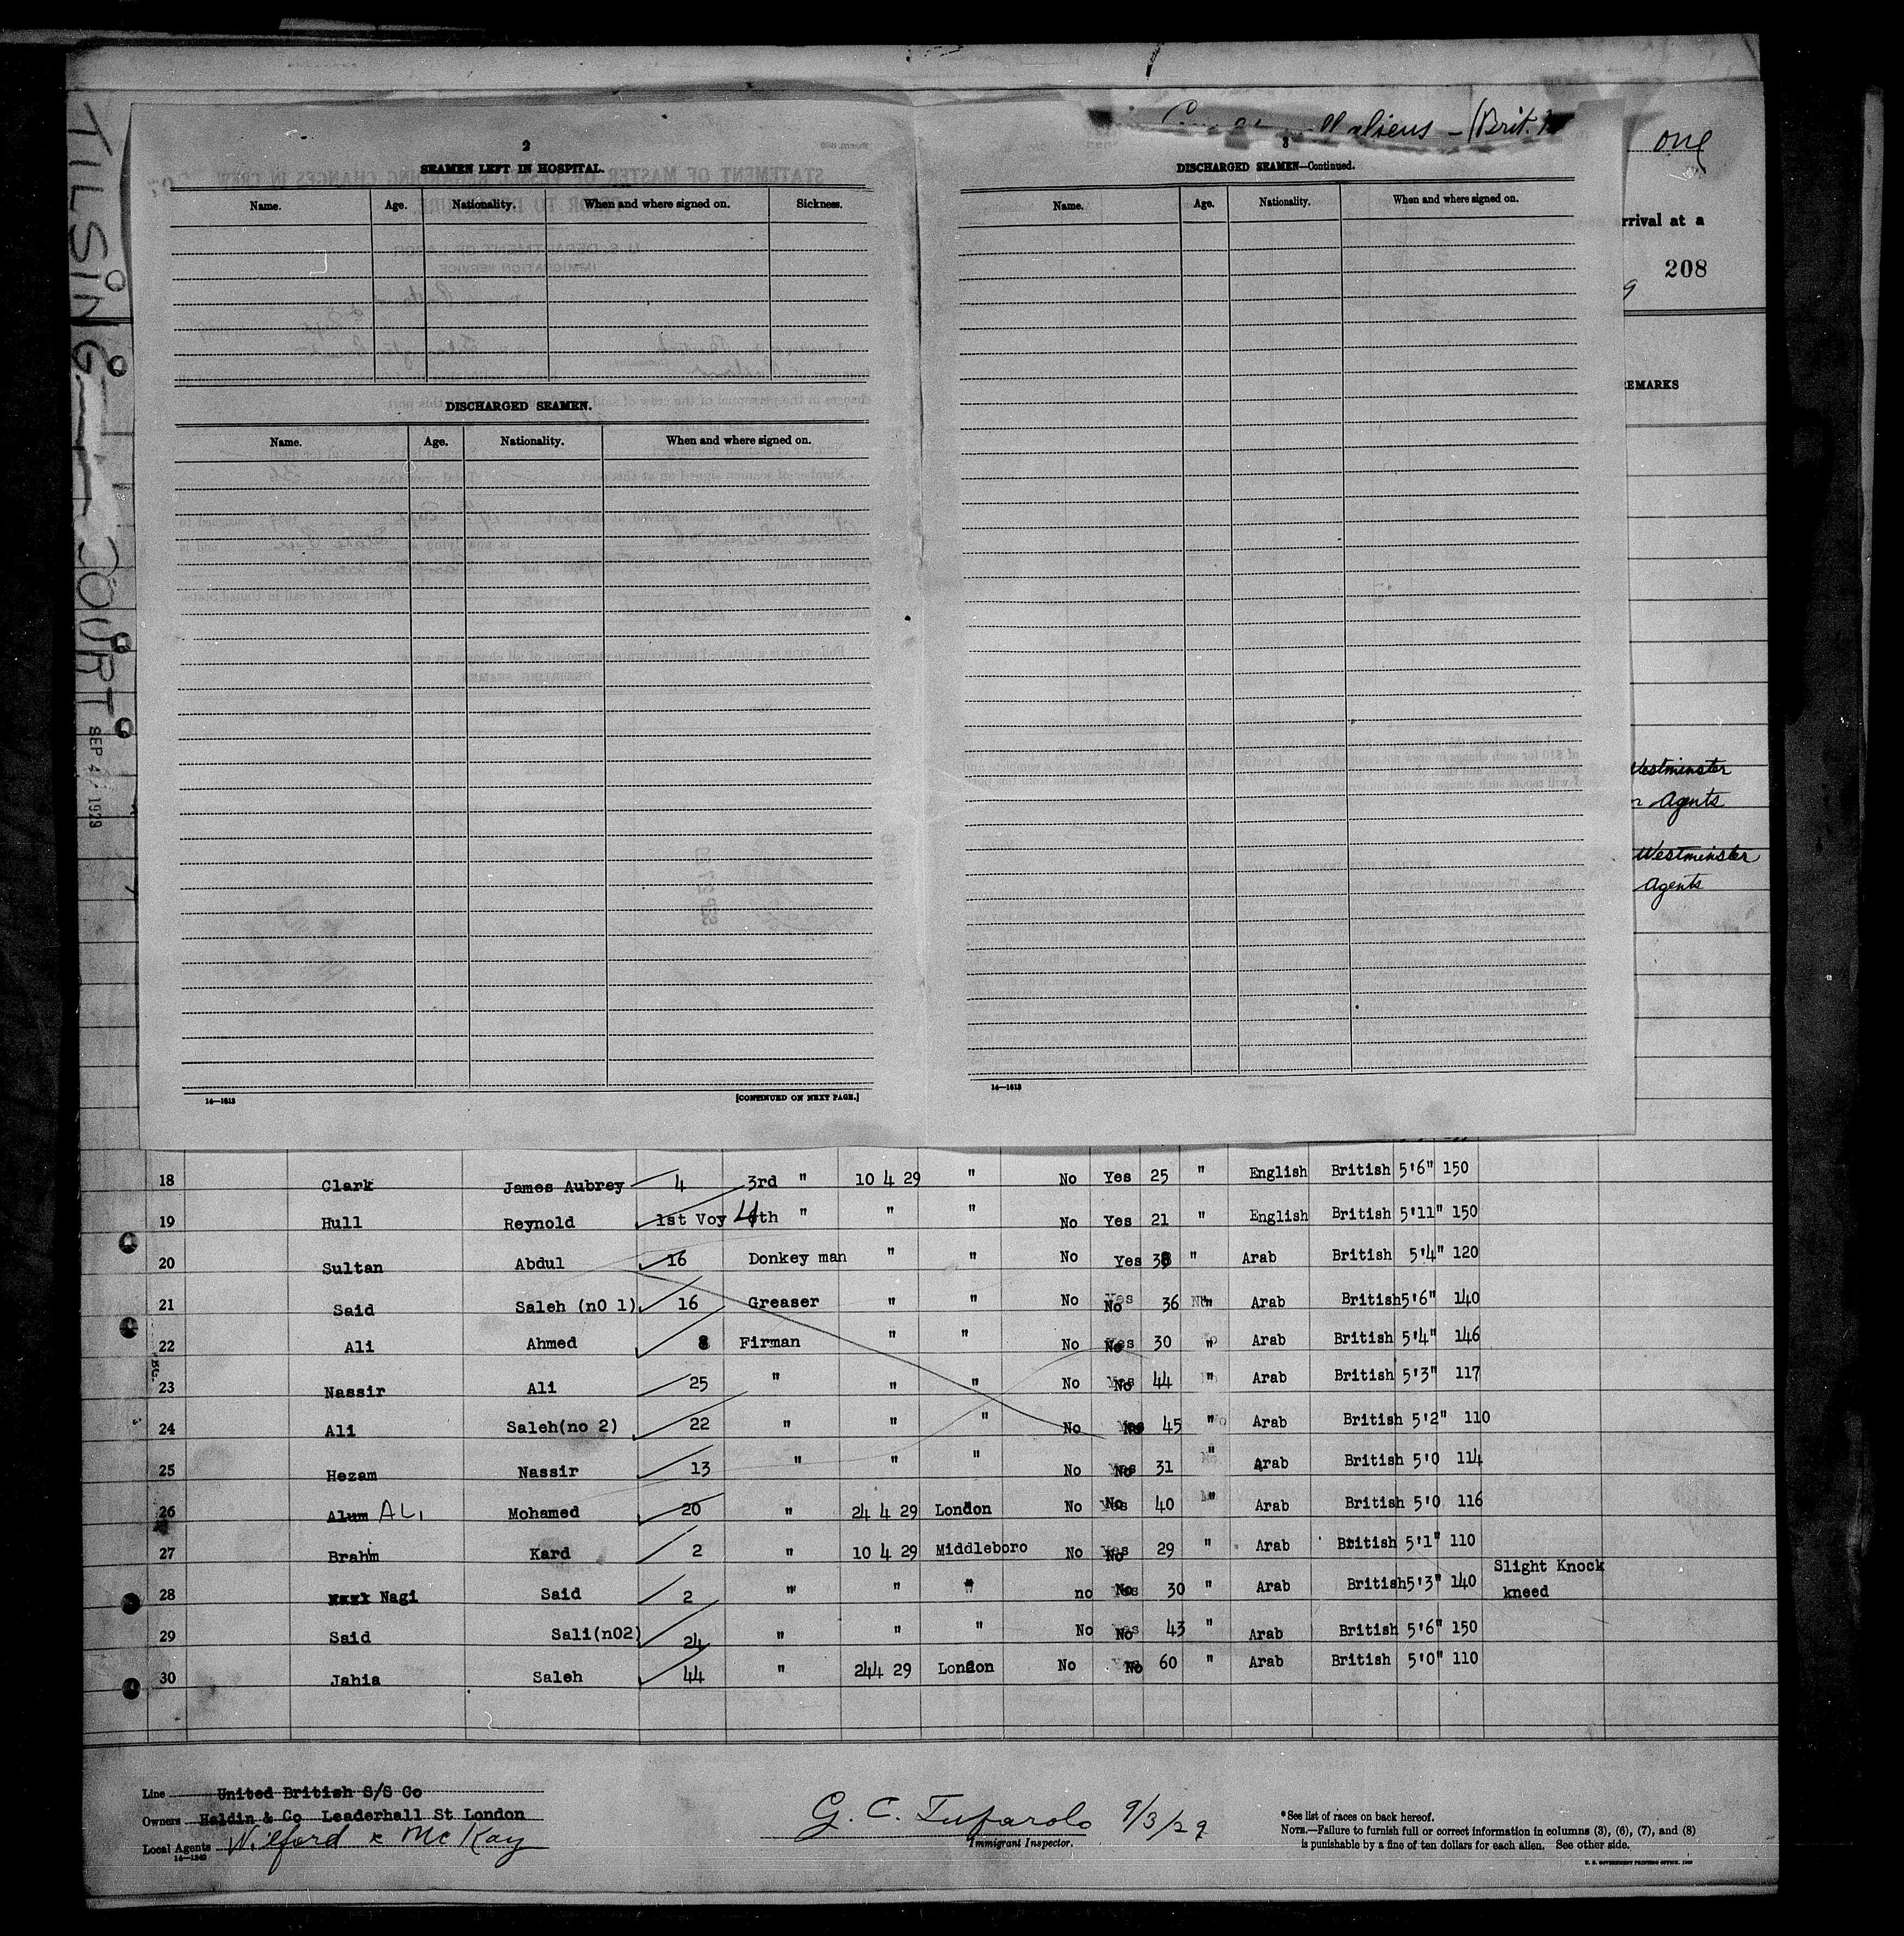 TILSINGTON COURT
SEP 4 1929
all aliens - (Brit.)
one
rrival at a
208
EMARKS
Westminster
Agents
Westminster
Agents
2
SEAMEN LEFT IN HOSPITAL.
Name. Age. Nationality. When and where signed on. Sickness.
DISCHARGED SEAMEN.
Name. Age. Nationality. When and where signed on.
14—1613 [CONTINUED ON NEXT PAGE.]
3
DISCHARGED SEAMEN—Continued.
Name. Age. Nationality. When and where signed on.
14—1613
18 Clark James Aubrey 4 3rd " 10 4 29 " No Yes 25 " English British 5'6" 150
19 Hull Reynold 1st Voy 4th " " " No Yes 21 " English British 5'11" 150
20 Sultan Abdul 16 Donkey man " " No Yes 38 " Arab British 5'4" 120
21 Said Saleh (nO 1) 16 Greaser " " No No 36 " Arab British 5'6" 140
22 Ali Ahmed 8 Firman " " No No 30 " Arab British 5'4" 146
23 Nassir Ali 25 " " " No No 44 " Arab British 5'3" 117
24 Ali Saleh(no 2) 22 " " " No No 45 " Arab British 5'2" 110
25 Hezam Nassir 13 " " " No No 31 " Arab British 5'0 114
26 Alum ALI Mohamed 20 " 24 4 29 London No No 40 " Arab British 5'0 116
27 Brahm Kard 2 " 10 4 29 Middleboro No No 29 " Arab British 5'1" 110
28 Nagi Said 2 " " " no No 30 " Arab British 5'3" 140 Slight Knock
kneed
29 Said Sali(nO2) 24 " " " No No 43 " Arab British 5'6" 150
30 Jahia Saleh 44 " 244 29 London No No 60 " Arab British 5'0" 110
Line United British S/S Co
Owners Haldin & Co Leaderhall St London
Local Agents Wilford & McKay
14—1240
G. C. Tufarolo 9/3/29
Immigrant Inspector.
*See list of races on back hereof.
NOTE.—Failure to furnish full or correct information in columns (3), (6), (7), and (8)
is punishable by a fine of ten dollars for each alien. See other side.
U. S. GOVERNMENT PRINTING OFFICE